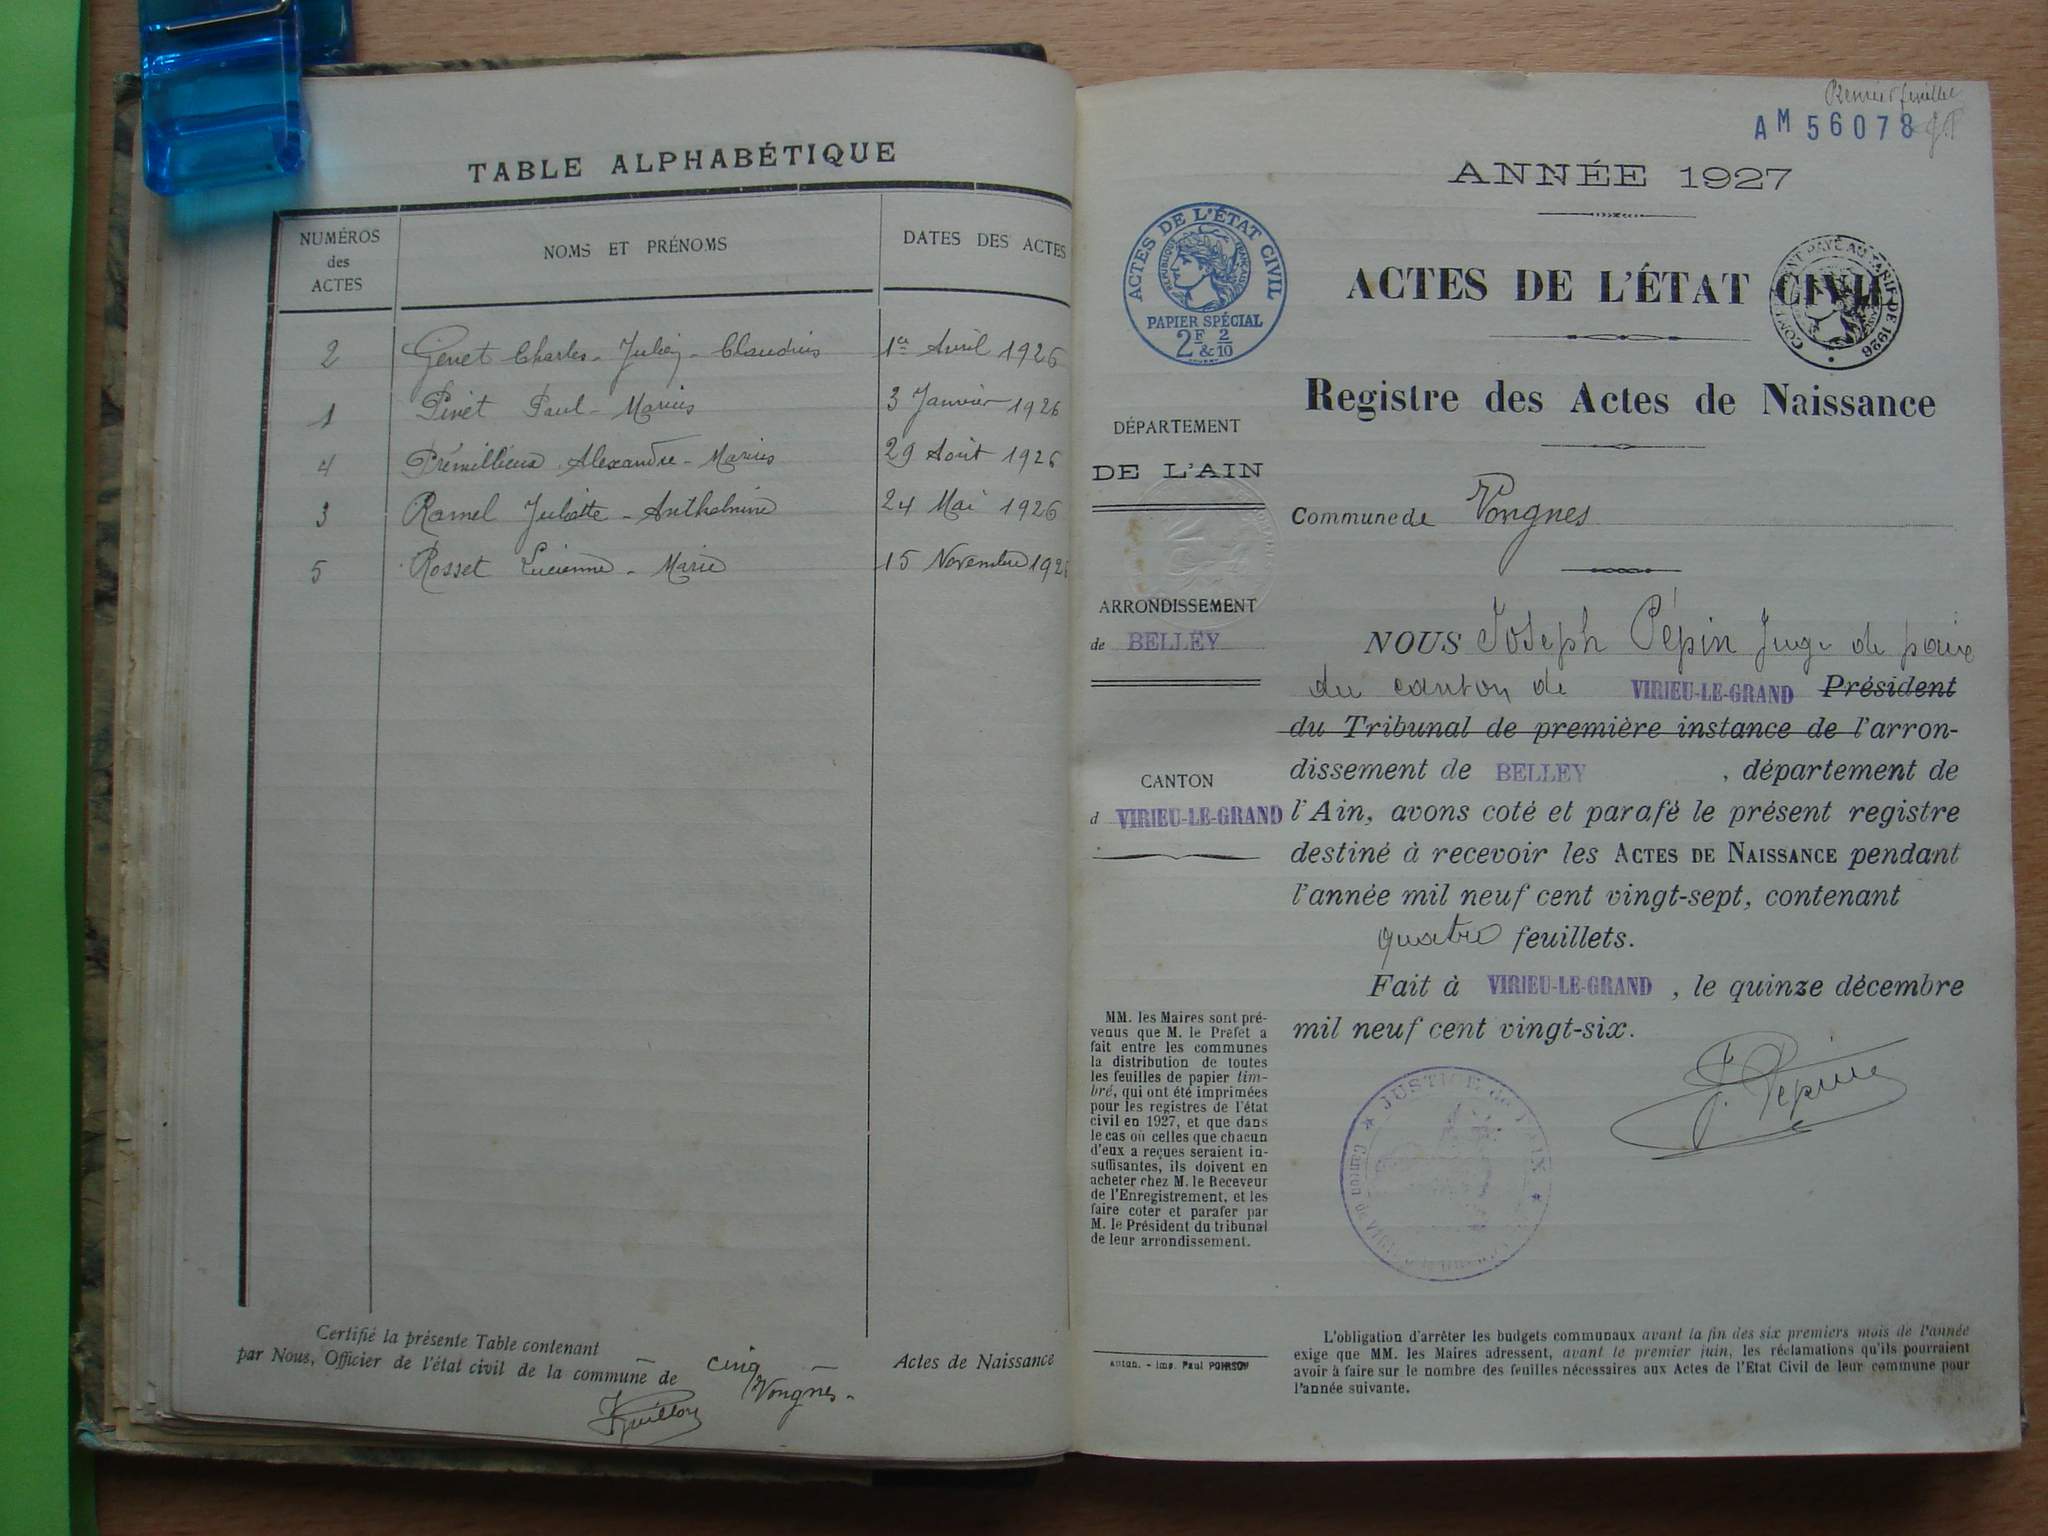 TABLE ALPHABÉTIQUE
NUMÉROS des ACTES
NOMS ET PRÉNOMS
DATES DES ACTES
2 Genet Charles - Julien - Claudius 1er Avril 1926
1 Pinet Paul - Marius 3 Janvier 1926
4 Prémillieux Alexandre - Marius 29 Août 1926
3 Ramel Juliette - Anthelmine 24 Mai 1926
5 Rosset Lucienne - Marie 15 Novembre 1926
Certifié la présente Table contenant cinq Actes de Naissance
par Nous, Officier de l'état civil de la commune de Vongnes -
Premier feuillet
AM 56078
ANNÉE 1927
ACTES DE L'ÉTAT CIVIL
RÉPUBLIQUE FRANÇAISE
PAPIER SPÉCIAL
2F & 2/10
ACTES DE L'ÉTAT CIVIL
Registre des Actes de Naissance
DÉPARTEMENT
DE L'AIN
Commune de Vongnes
ARRONDISSEMENT
de BELLEY
CANTON
d VIRIEU-LE-GRAND
NOUS Joseph Pépin Juge de paix
du canton de VIRIEU-LE-GRAND Président
du Tribunal de première instance de l'arron-
dissement de BELLEY , département de
l'Ain, avons coté et parafé le présent registre
destiné à recevoir les ACTES DE NAISSANCE pendant
l'année mil neuf cent vingt-sept, contenant
quatre feuillets.
Fait à VIRIEU-LE-GRAND , le quinze décembre
mil neuf cent vingt-six.
J. Pépin
JUSTICE de PAIX
MM. les Maires sont pré-
venus que M. le Préfet a
fait entre les communes
la distribution de toutes
les feuilles de papier tim-
bré, qui ont été imprimées
pour les registres de l'état
civil en 1927, et que dans
le cas où celles que chacun
d'eux a reçues seraient in-
suffisantes, ils doivent en
acheter chez M. le Receveur
de l'Enregistrement, et les
faire coter et parafer par
M. le Président du tribunal
de leur arrondissement.
Imp. Paul
L'obligation d'arrêter les budgets communaux avant la fin des six premiers mois de l'année
exige que MM. les Maires adressent, avant le premier juin, les réclamations qu'ils pourraient
avoir à faire sur le nombre des feuilles nécessaires aux Actes de l'Etat Civil de leur commune pour
l'année suivante.